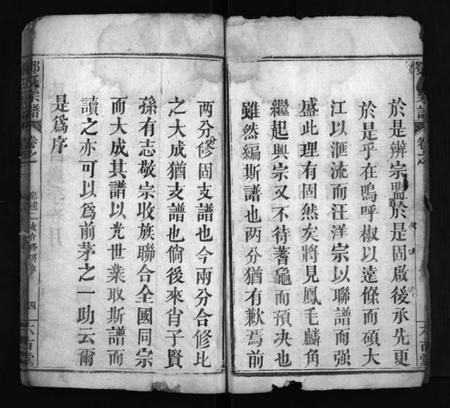 於是辨宗盟於是固啟後承先更
於是乎在嗚呼椒以遠條而碩大
江以滙流而汪洋宗以聯譜而强
盛此理有固然矣將見鳳毛麟角
繼起興宗又不待蓍龜而預决也
雖然編斯譜也两分猶有歉焉前
两分修固支譜也今兩分合修比
之大成猶支譜也倘後來肖子賢
孫有志敬宗收族聯合全國同宗
而大成其譜以光世業取斯譜而
讀之亦可以為前茅之一助云爾
是為序
氏宗譜
卷之
四
六言堂